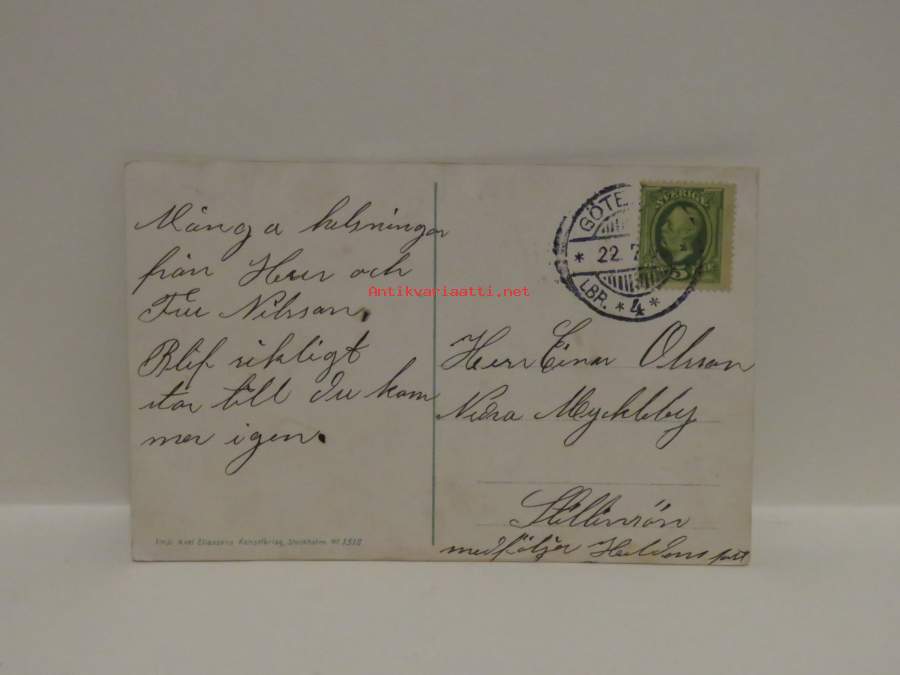 Många helsningar
från Herr och
Fru Nilsson.
Blif riktigt
stor till du kom
mer igen.
Impr. Axel Eliassons Konstförlag, Stockholm Nº 1918
SVERIGE
5
GÖTE
* 22. 7
LBR. *4*
Herr Einar Olsson
Nedra Myckleby
Stillingsön
medföljer Haldens post
Antikvariaatti.net